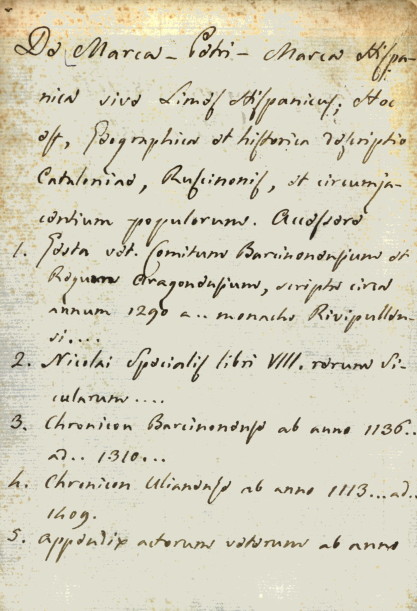 De Marca - Petri - Marca Hispa-
nica sive Limes Hispanicus; Hoc
est, Geographica et historica descriptio
Cataloniae, Ruscinonis, et circumja-
centium populorum. Accessere
1. Gesta vet. Comitum Barcinonensium et
Regum Aragonensium, scripta circa
annum 1290 a.. monacho Rivipullen-
si....
2. Nicolai Specialis libri VIII. rerum Si-
cularum....
3. Chronicon Barcinonense ab anno 1136..
ad.. 1310...
4. Chronicon Ulianense ab anno 1113... ad..
1409.
5. Appendix actorum veterum ab anno